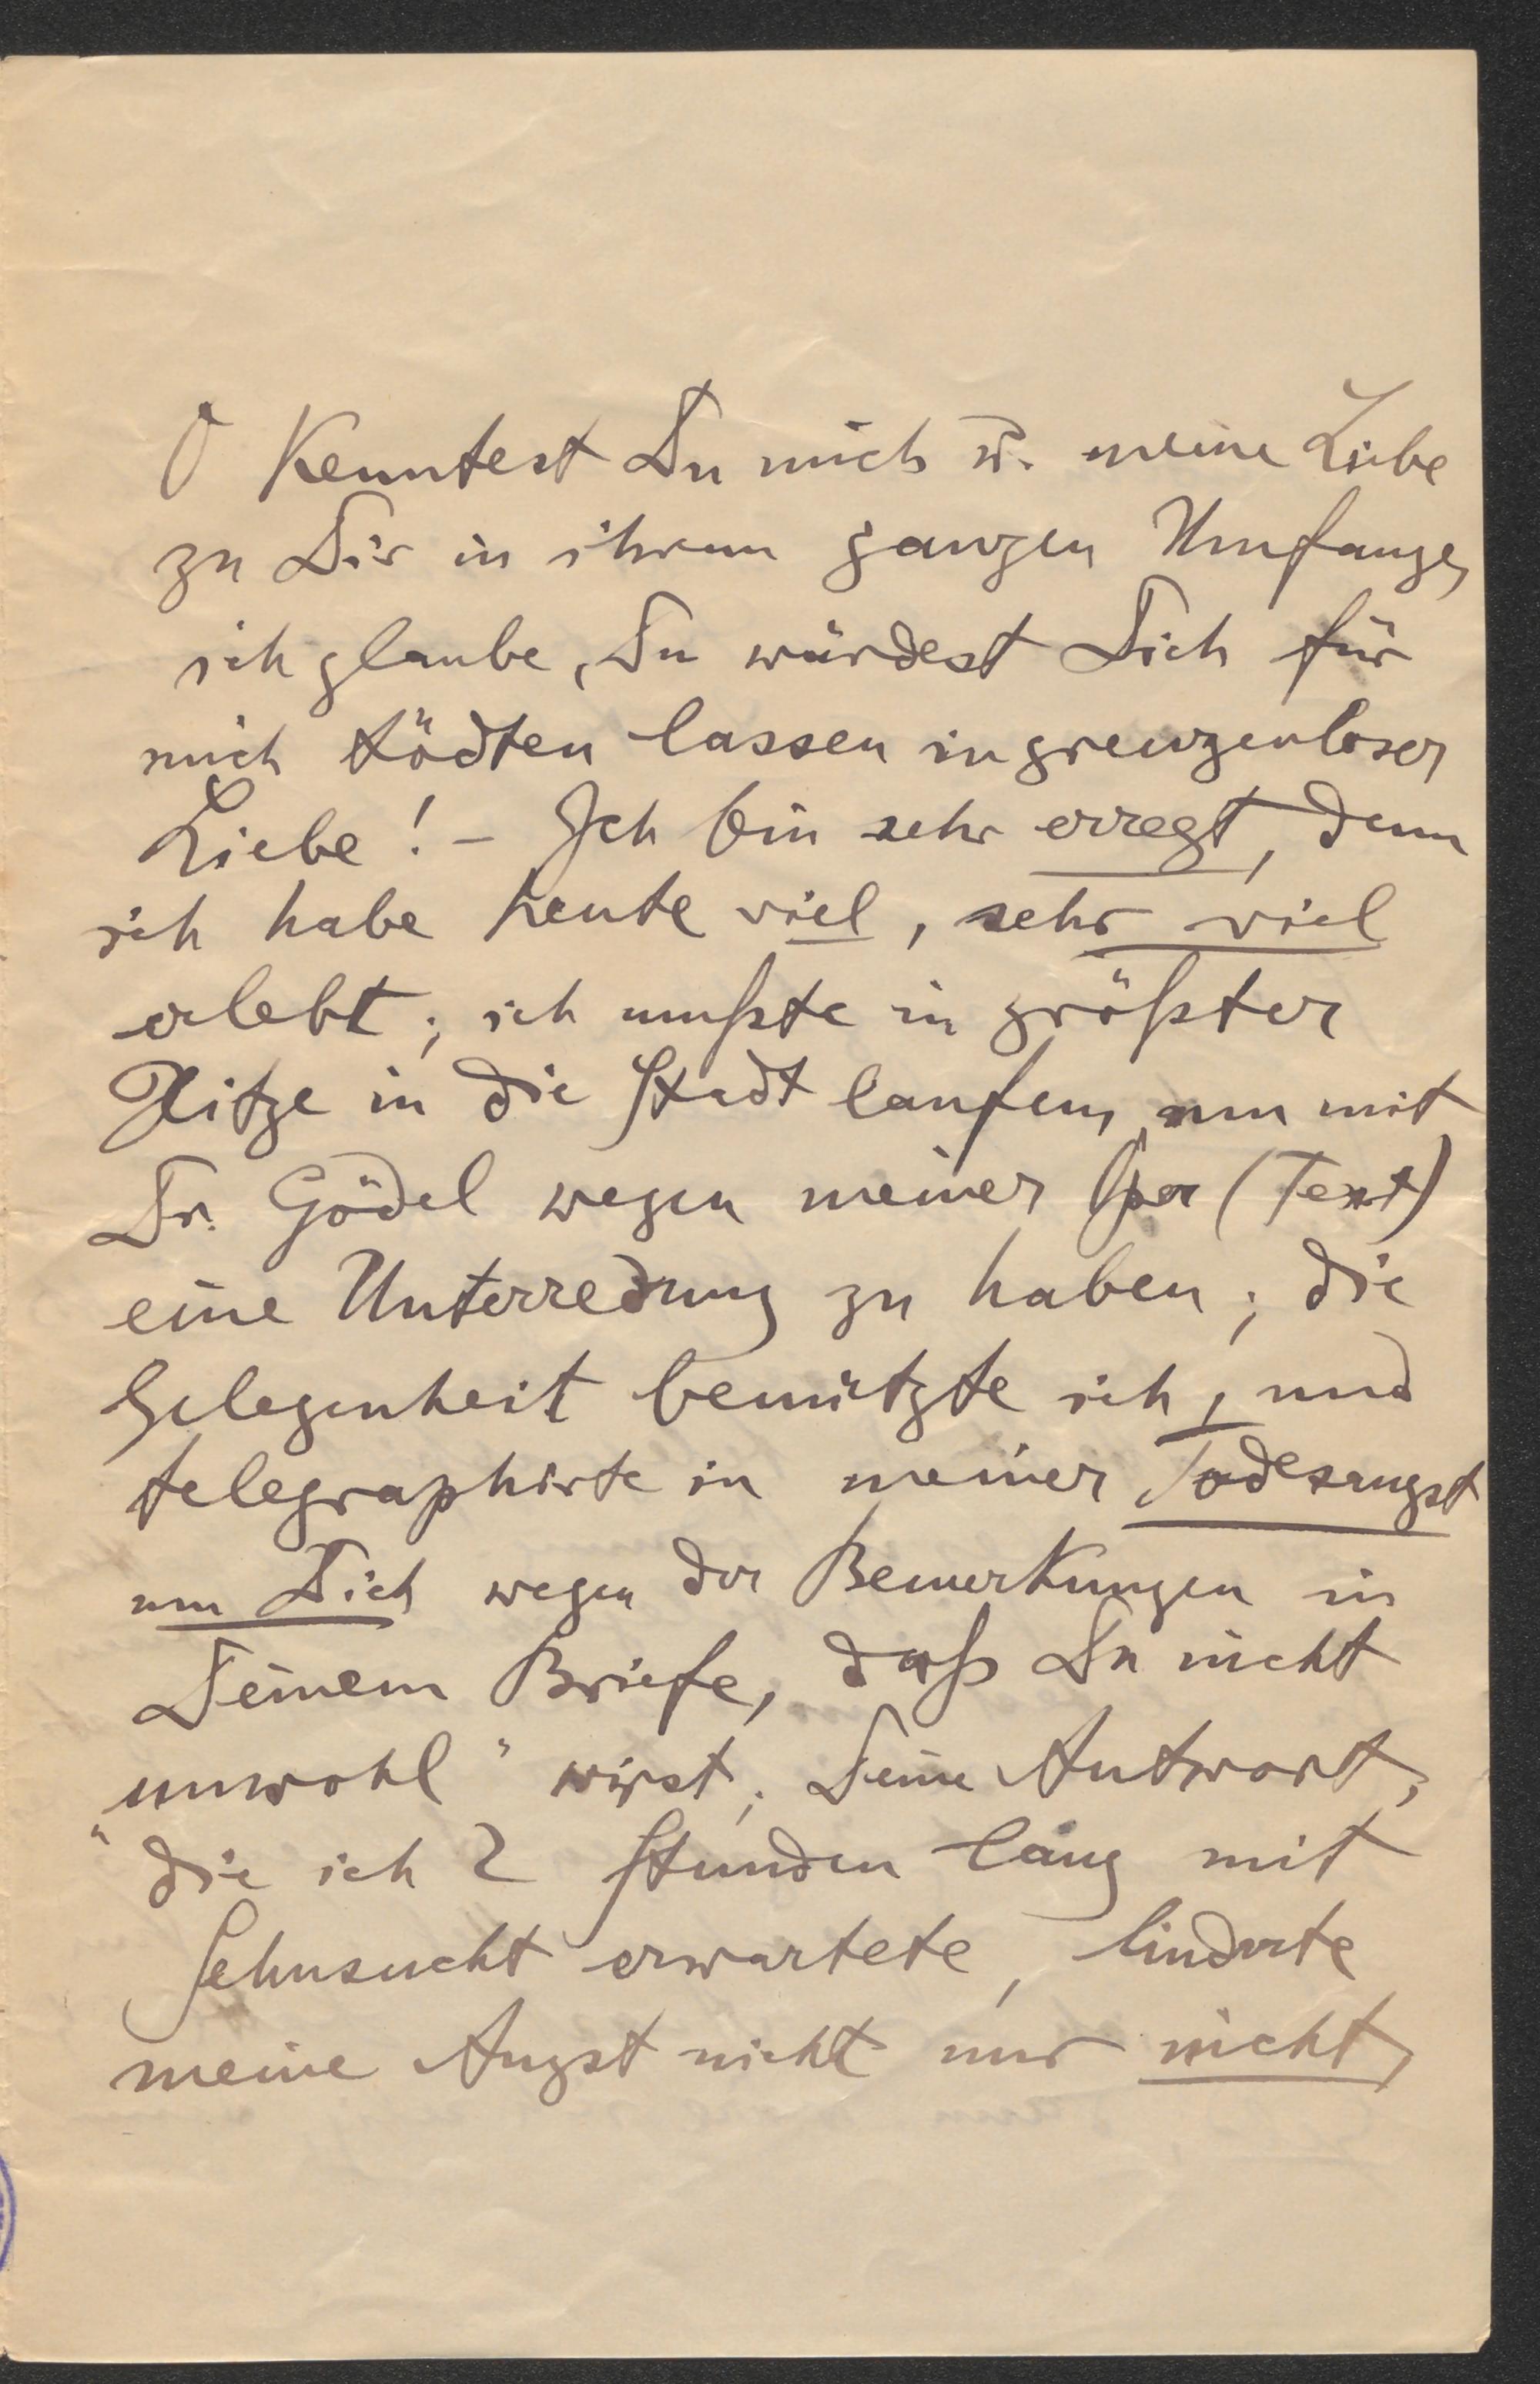 O kenntest Du mich u. meine Liebe
zu Dir in ihrem ganzen Umfange,
ich glaube, Du würdest Dich für
mich tödten lassen in grenzenloser
Liebe! – Ich bin sehr erregt, denn
ich habe heute viel, sehr viel
erlebt; ich mußte in größter
Hitze in die Stadt laufen, um mit
Dr. Gödel wegen meiner Oper (Text)
eine Unterredung zu haben; die
Gelegenheit benützte ich, und
telegraphirte in meiner Todesangst
um Dich wegen der Bemerkungen in
Deinem Briefe, daß Du nicht
„unwohl" wirst; Deine Antwort,
die ich 2 Stunden lang mit
Sehnsucht erwartete, linderte
meine Angst nicht nur nicht,